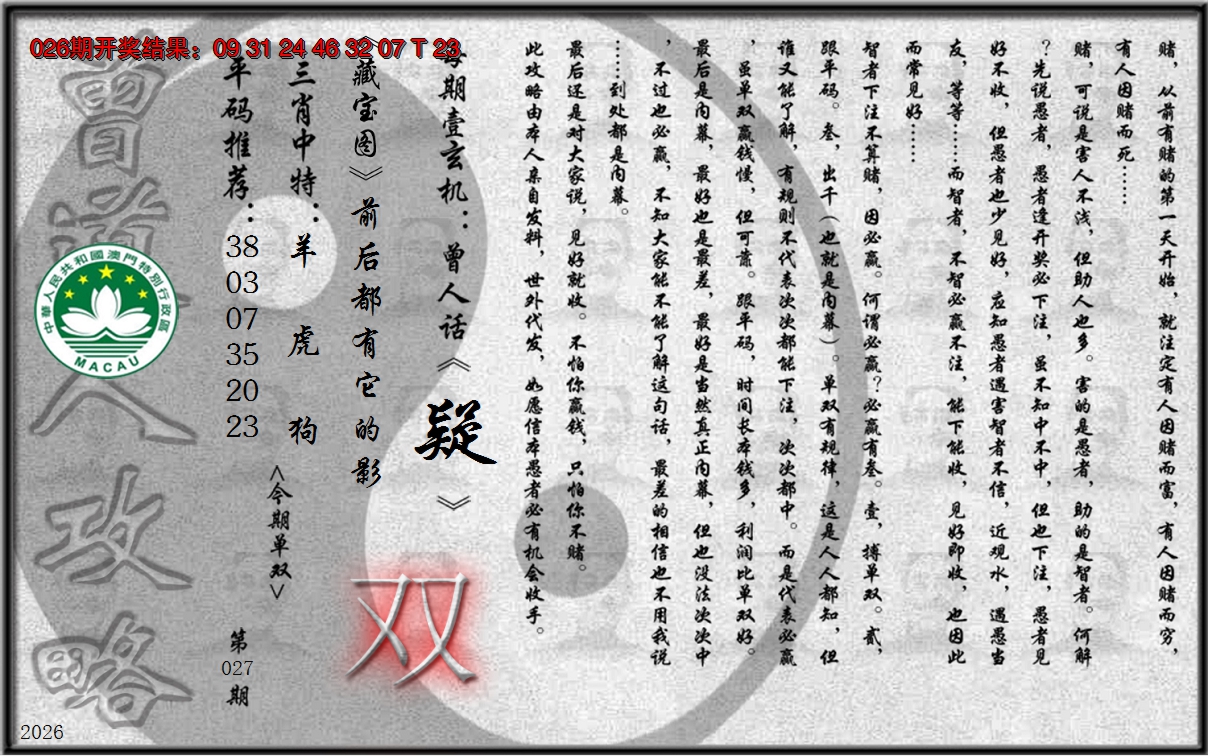 026期开奖结果：09 31 24 46 32 07 T 23
赌，从前有赌的第一天开始，就注定有人因赌而富，有人因赌而穷，
有人因赌而死……
赌，可说是害人不浅，但助人也多。害的是愚者，助的是智者。何解
？先说愚者，愚者逢开奖必下注，虽不知中不中，但也下注，愚者见
好不收，但愚者也少见好，应知愚者遇害智者不信，近观水，遇愚当
友，等等……而智者，不智必赢不注，能下能收，见好即收，也因此
而常见好……
智者下注不算赌，因必赢。何谓必赢？必赢有叁。壹，搏单双。贰，
跟平码。叁，出千（也就是内幕）。单双有规律，这是人人都知，但
谁又能了解，有规则不代表次次都能下注，次次都中。而是代表必赢
，虽单双赢钱慢，但可靠。跟平码，时间长本钱多，利润比单双好。
最后是内幕，最好也是最差，最好是当然真正内幕，但也没法次次中
，不过也必赢，不知大家能不能了解这句话，最差的相信也不用我说
……到处都是内幕。
最后还是对大家说，见好就收。不怕你赢钱，只怕你不赌。
此攻略由本人亲自发料，世外代发，如愿信本愚者必有机会收手。
每期壹玄机：曾人话《疑》
《藏宝图》前后都有它的影
双
三肖中特：羊 虎 狗
<今期单双>
平码推荐：38 03 07 35 20 23
第027期
曾道人攻略
中華人民共和國澳門特別行政區
MACAU
2026